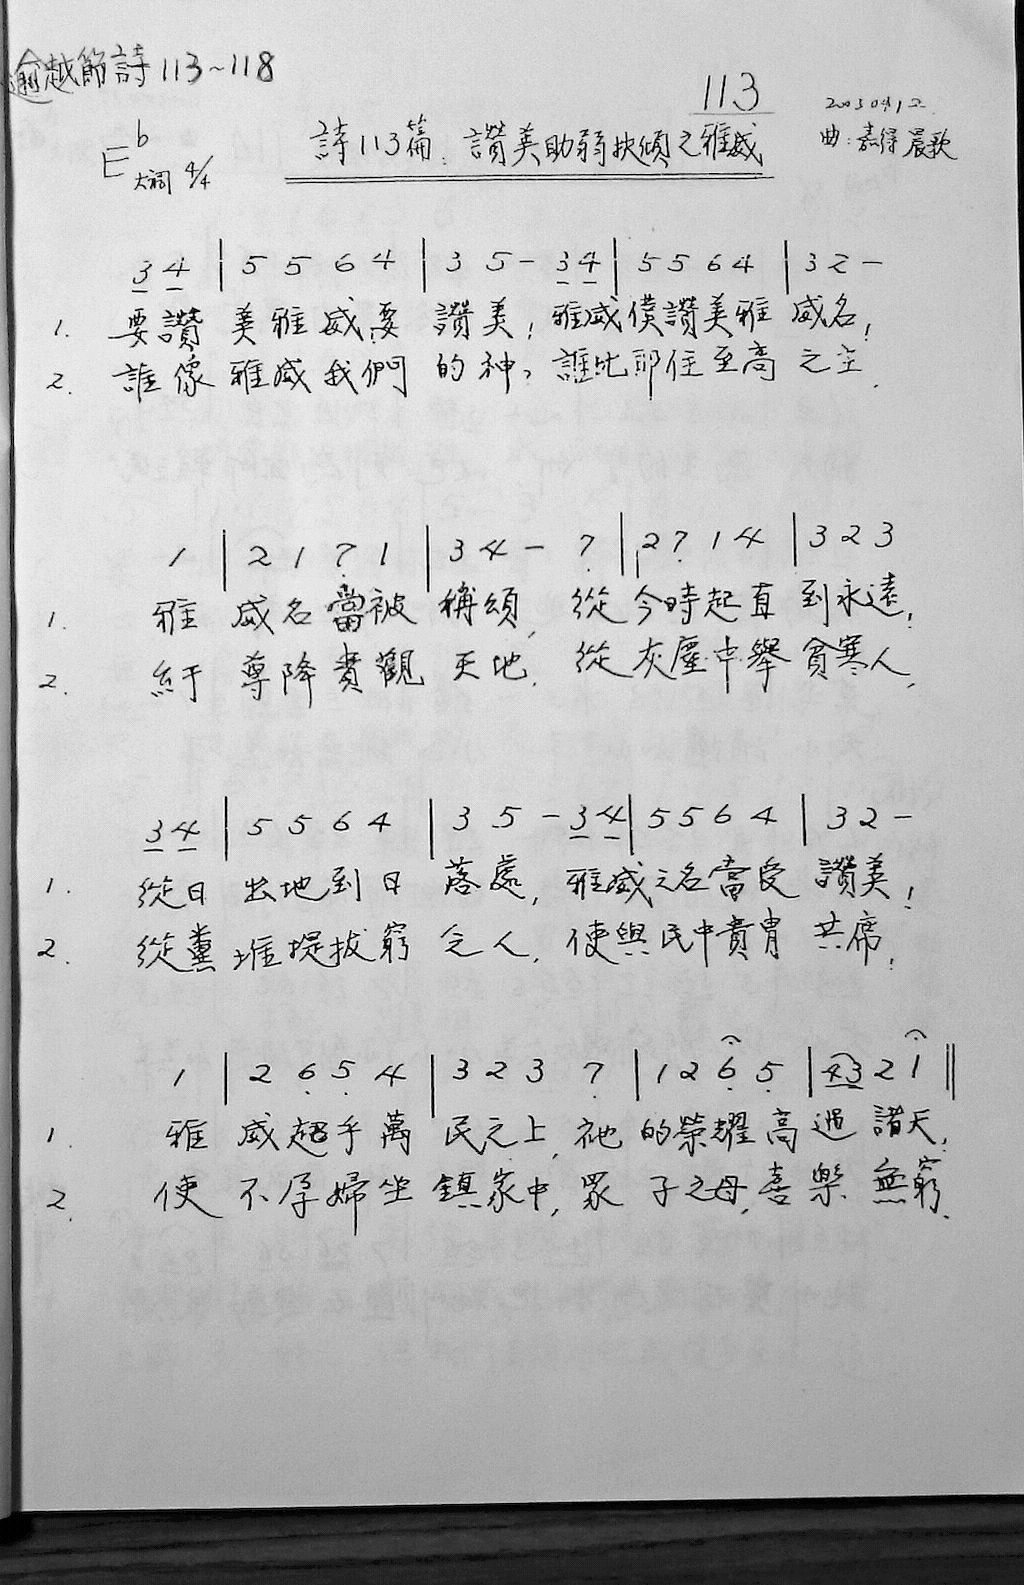 逾越節詩113~118
113
20030412
E b 大調 4/4
詩113篇:讚美助弱扶傾之雅威
曲:嘉得晨歌
3 4 | 5 5 6 4 | 3 5 - 3 4 | 5 5 6 4 | 3 2 -
1. 要讚 美雅威要 讚美!雅威僕讚美雅 威名!
2. 誰像 雅威我們 的神,誰比那住至高 之主.
1 | 2 1 7 1 | 3 4 - 7 | 2 7 1 4 | 3 2 3
1. 雅 威名當被 稱頌,從 今時起直 到永遠!
2. 紆 尊降貴觀 天地.從 灰塵中舉 貧寒人,
3 4 | 5 5 6 4 | 3 5 - 3 4 | 5 5 6 4 | 3 2 -
1. 從日 出地到日 落處,雅威之名當受 讚美!
2. 從糞 堆提拔窮 乏人.使與民中貴胄 共席.
1 | 2 6 5 4 | 3 2 3 7 | 1 2 6 5 | 43 2 1 ||
1. 雅 威超乎萬 民之上,祂 的榮耀高 過 諸天.
2. 使 不孕婦坐 鎮家中,眾 子之母,喜 樂 無窮.